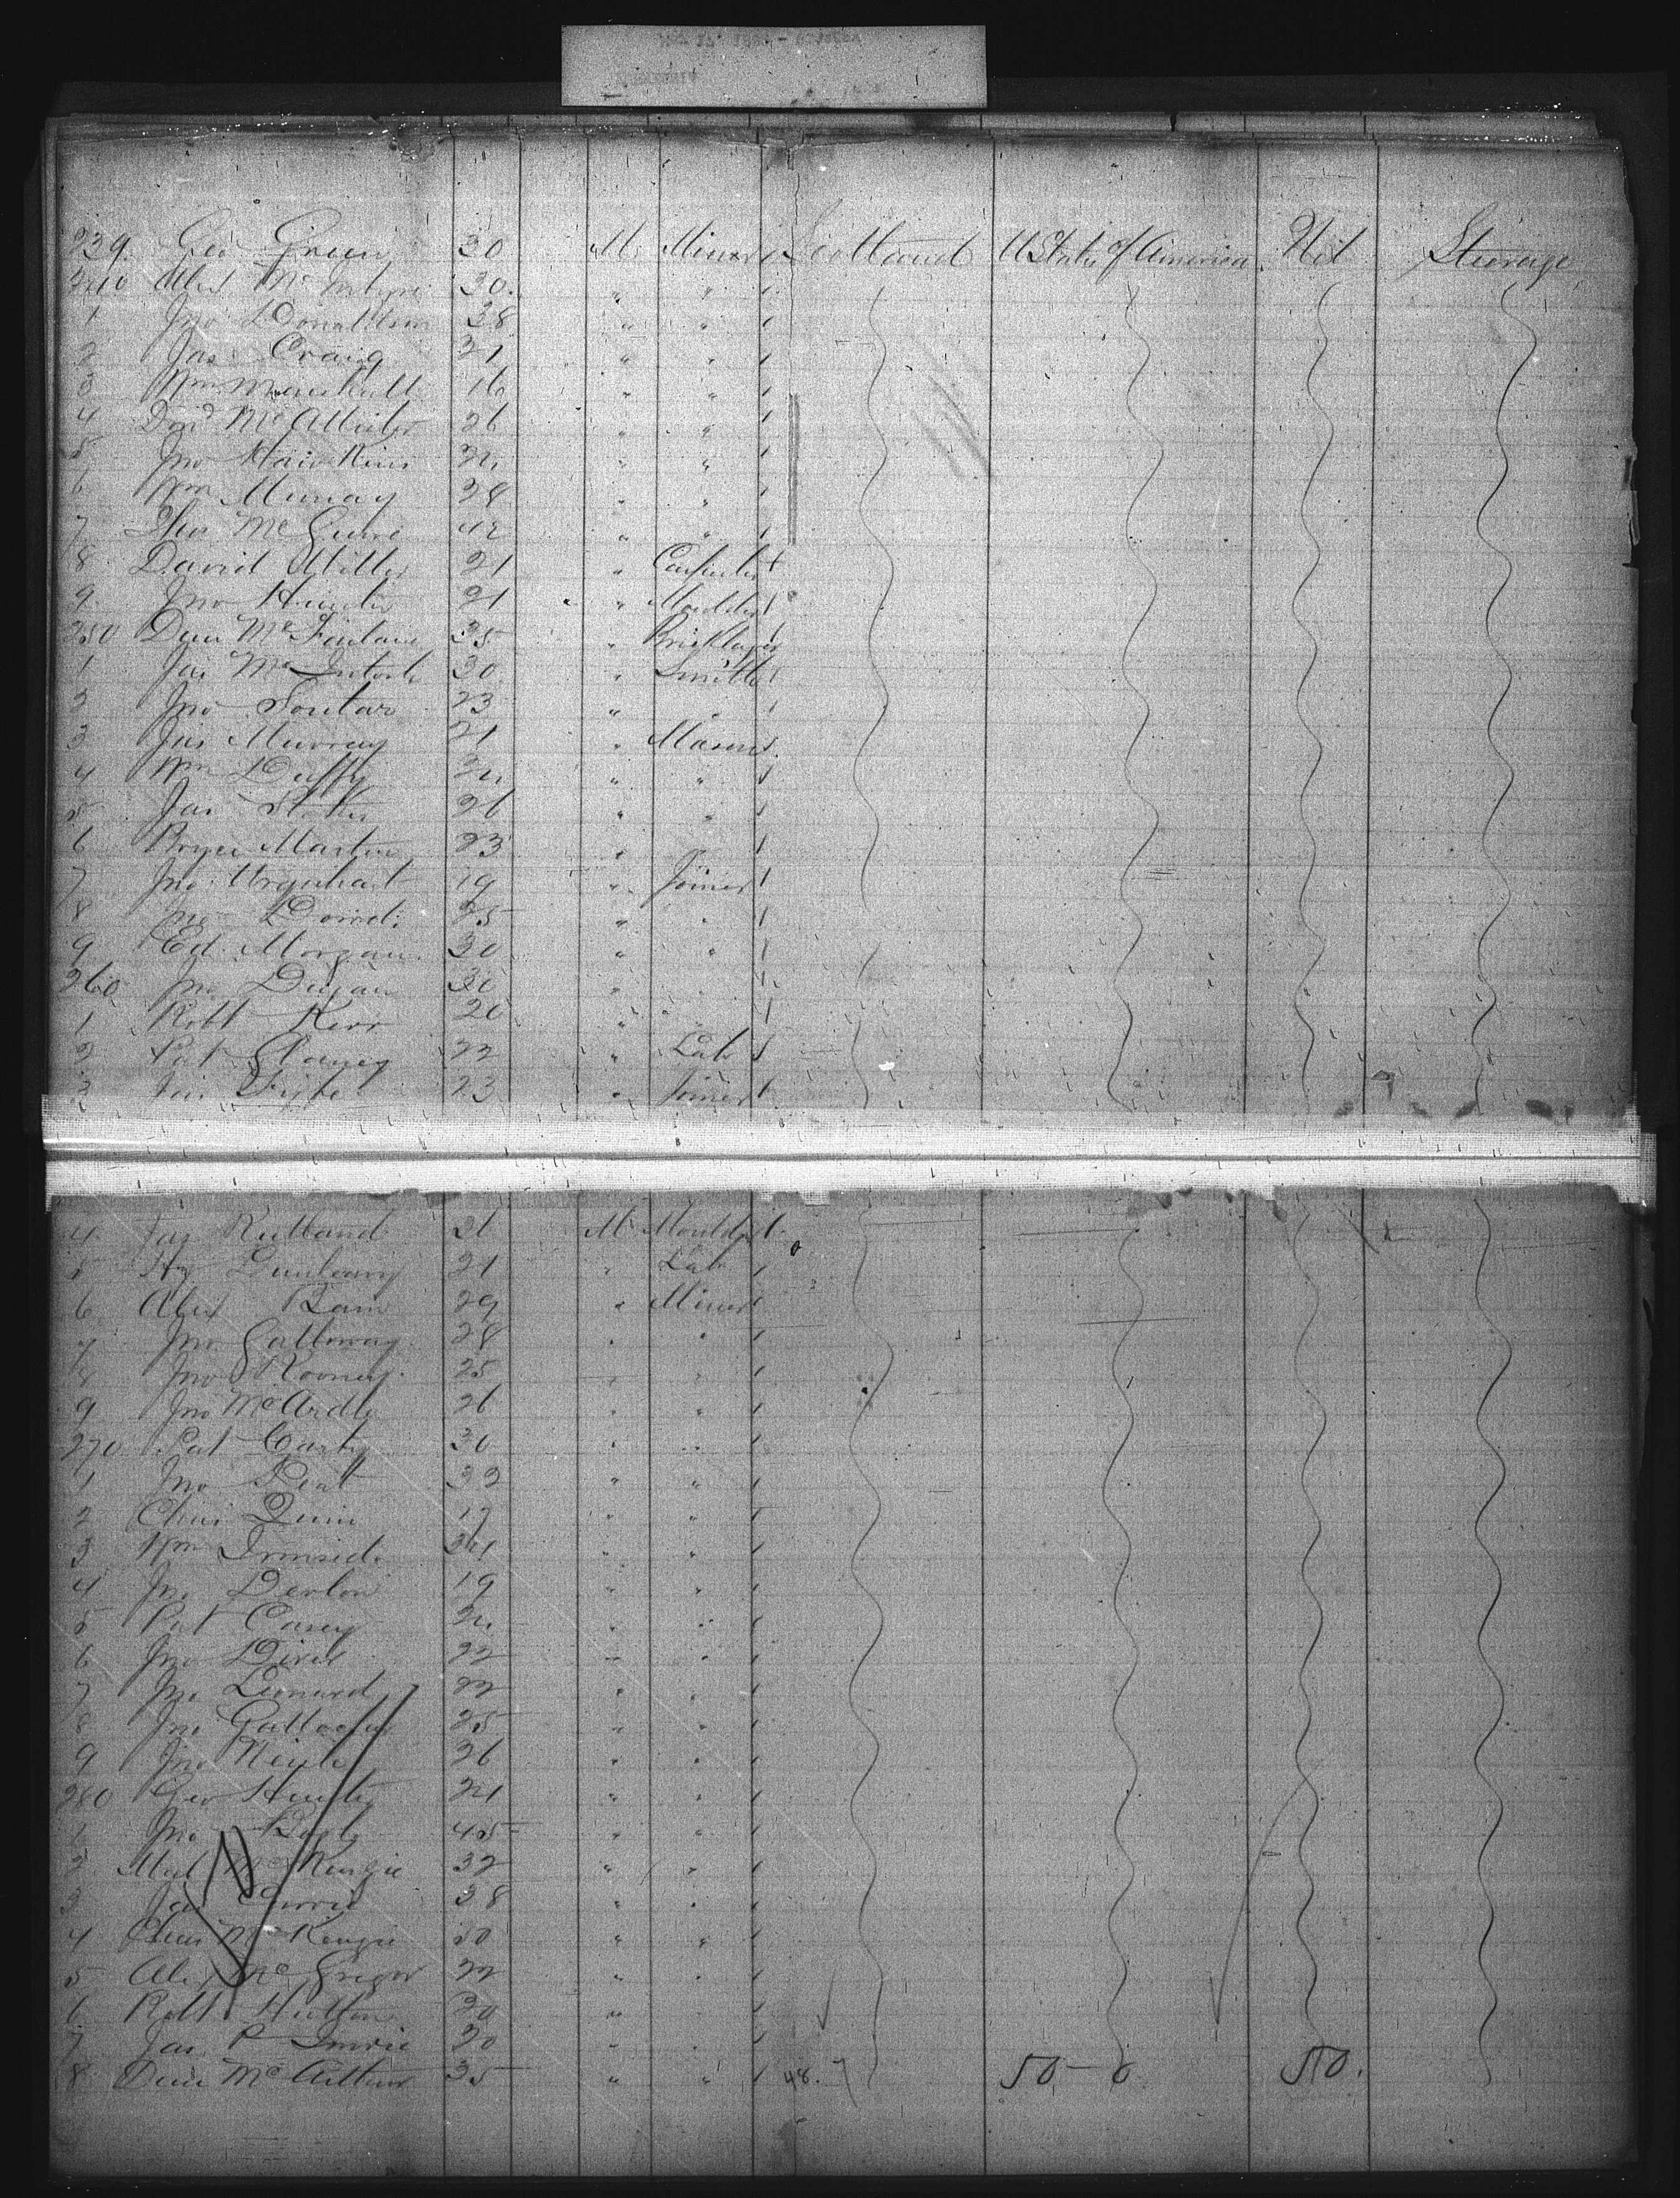 239. Geo Green 30 M Miner 1 Scotland U State of America Nil Steerage
240 Alex McIntyre 30. " " 1
1 Jno Donaldson 38 " " 1
2 Jas Craig 21 " " 1
3 Wm Marshall 16 " " 1
4 Dav McAllister 26 " " 1
5 Jno " " 1
6 Wm Murray 28 " " 1
7 Thos McGuire 42 " " 1
8 David Miller 21 " Carpenter 1
9. Jno Hunter 21 " Moulder 1
250 Dun McFarlane 35 " Bricklayer
1 Jas McIntosh 30 " Smith 1
2 Jno Soutar 23 " " 1
3 Jas Murray 21 " Mason 1
4 Wm Duffy " " 1
5 Jas 26 " " 1
6 Bryce Martin 23 " " 1
7 Jno Urquhart 19 " Joiner 1
8 Jno David 25 " " 1
9 Ed. Morgan 30 " " 1
260 Jno Dugan 30 " " 1
1 Robt Kerr 20 " " 1
2 Pat 22 " Lab 1
3 Jas Fyfe 23 " Joiner 1
4 Jas Rutland 26 M Moulder 1
5 Hy Dunleavy 21 " Lab 1
6 Alex Bain 29 " Miner 1
7 Jno Galloway 28 " " 1
8 Jno Rooney 25 " " 1
9 Jno McArdle 26 " " 1
270 Pat Carty 30 " " 1
1 Jno 32 " " 1
2 Chas Quin 17 " " 1
3 Wm Ironside 34 " " 1
4 Jno Devlin 19 " " 1
5 Pat Casey " " 1
6 Jno 22 " " 1
7 Jno Leonard 22 " " 1
8 Jno Gallacher 25 " " 1
9 Jno 26 " " 1
280 Geo Hunter 21 " " 1
1 Jno 45 " " 1
2 McKenzie 32 " " 1
3 Jas Currie 38 " " 1
4 Chas McKenzie 30 " " 1
5 Alex McGregor 22 " " 1
6 Robt Hutton 30 " " 1
7 Jas P Imrie 20 " " 1
8 Dun McArthur 35 " " 1 48. 50 - 0 50.